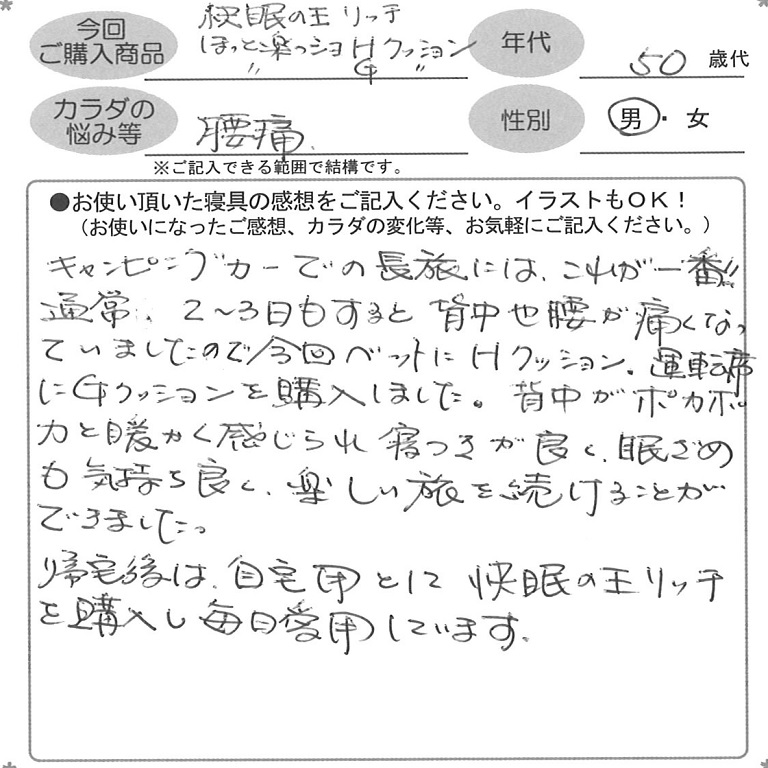 今回
ご購入商品
快眠の王リッチ
ほっと楽っショHクッション
〃 G 〃
年代
50 歳代
カラダの
悩み等
腰痛
性別
男・女
※ご記入できる範囲で結構です。
●お使い頂いた寝具の感想をご記入ください。イラストもOK！
（お使いになったご感想、カラダの変化等、お気軽にご記入ください。）
キャンピングカーでの長旅には、これが一番!!
通常、2～3日もすると背中や腰が痛くなっ
ていましたので今回ベットにHクッション、運転席
にGクッションを購入しました。背中がポカポ
カと暖かく感じられ寝つきが良く、眠ざめ
も気持ち良く、楽しい旅を続けることが
できました。
帰宅後は、自宅用とに快眠の王リッチ
を購入し毎日愛用しています。